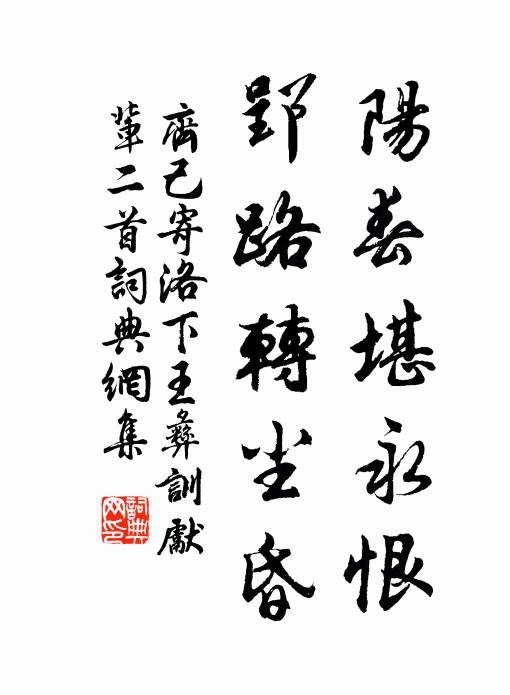 陽春堪永恨
郢路轉尘昏
齊己寄洛下王彝訓獻
輩二首詞典網集
詞典網印